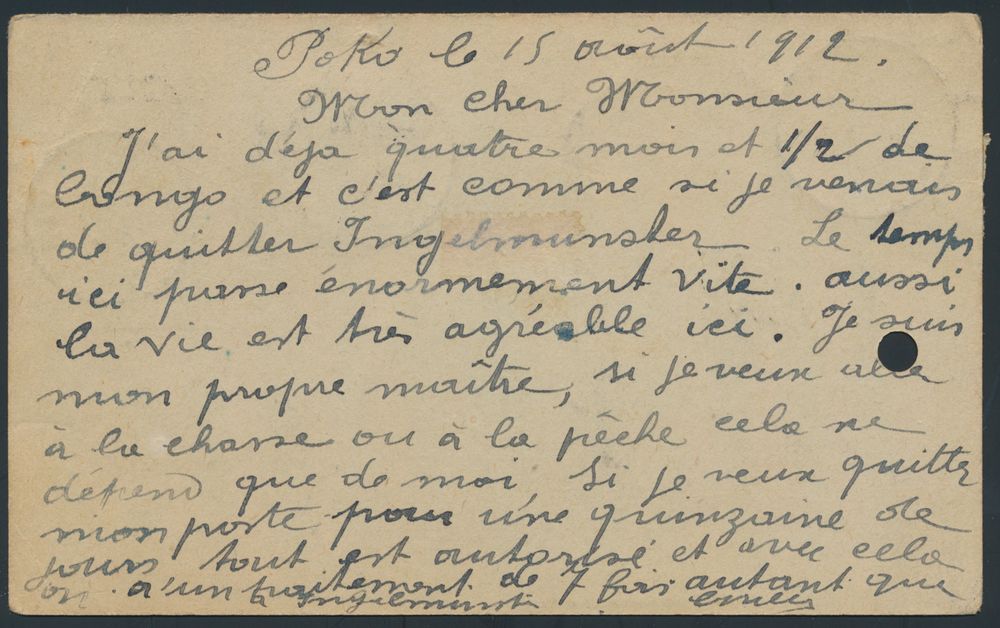 Poko le 15 août 1912.
Mon cher Monsieur
J'ai déja quatre mois et 1/2 de
Congo et c'est comme si je venais
de quitter Ingelmunster Le temps
ici passe énormement vite. aussi
la vie est très agréable ici. Je suis
mon propre maître, si je veux aller
à la chasse ou à la pêche cela ne
dépend que de moi, Si je veux quitter
mon poste pour une quinzaine de
jours tout est autorisé et avec cela
on a un traitement de 7 fois autant que
à Ingelmunster